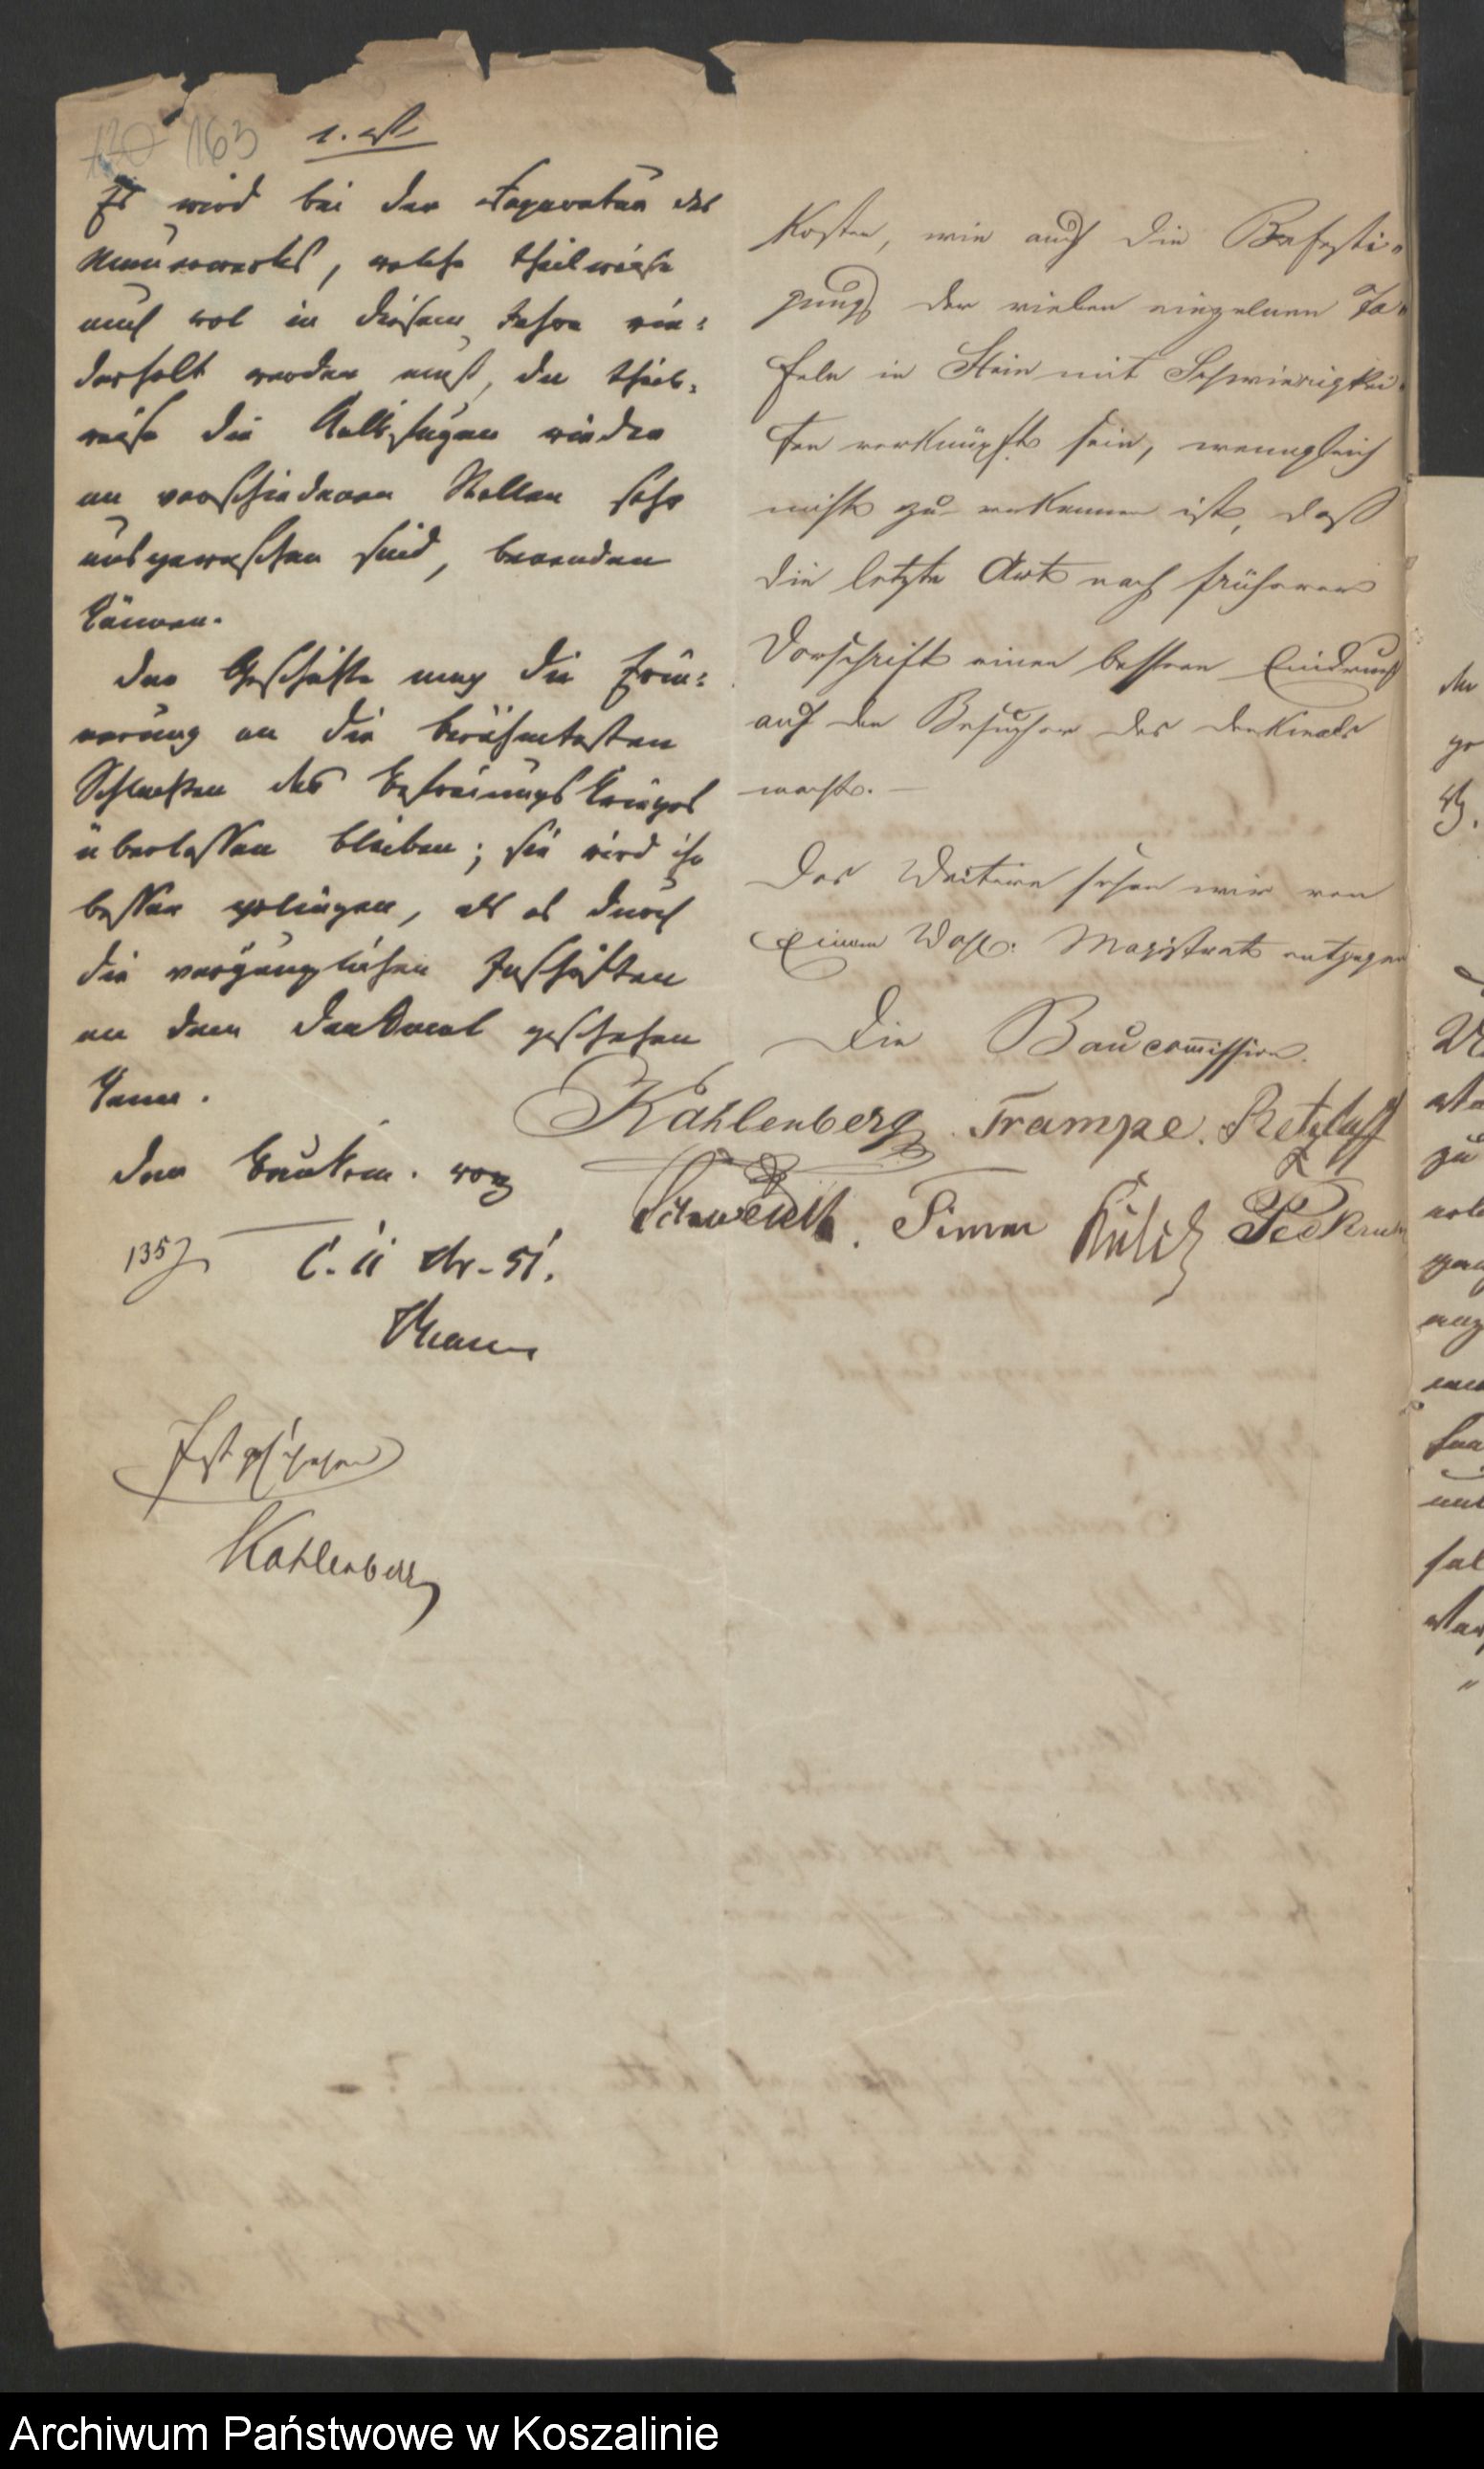 120 163
Es wird bei der Reparatur des
Mauerwerks, welche theilweise
auch wol in diesem Jahre wie-
derholt werden muß, da theil-
weise die Kalkfugen wieder
an verschiedenen Stellen sehr
ausgewaschen sind, bewenden
können.
Der Geschichte mag die Erin-
nerung an die berühmtesten
Schlachten des Befreiungskrieges
überlassen bleiben; sie wird ihr
besser gelingen, als es durch
die vergänglichen Inschriften
an dem Denkmal geschehen
kann.
Der Baukom. vorz
C. 11 Apr. 51.
Ist geschehen
Kahlenberg
Kosten, wie auch die Befesti-
gung der vielen einzelnen Ta-
feln in Stein mit Schwierigkei-
ten verknüpft sein, wenngleich
nicht zu verkennen ist, daß
die letzte Art nach früherer
Vorschrift einen bessern Eindruck
auf den Besucher des Denkmals
macht. —
Das Weitere sehen wir von
Einem Wohl. Magistrat entgegen
Die Baucommission.
Kahlenberg. Trampe. Retzlaff
Schwendt. Timm
Archiwum Państwowe w Koszalinie